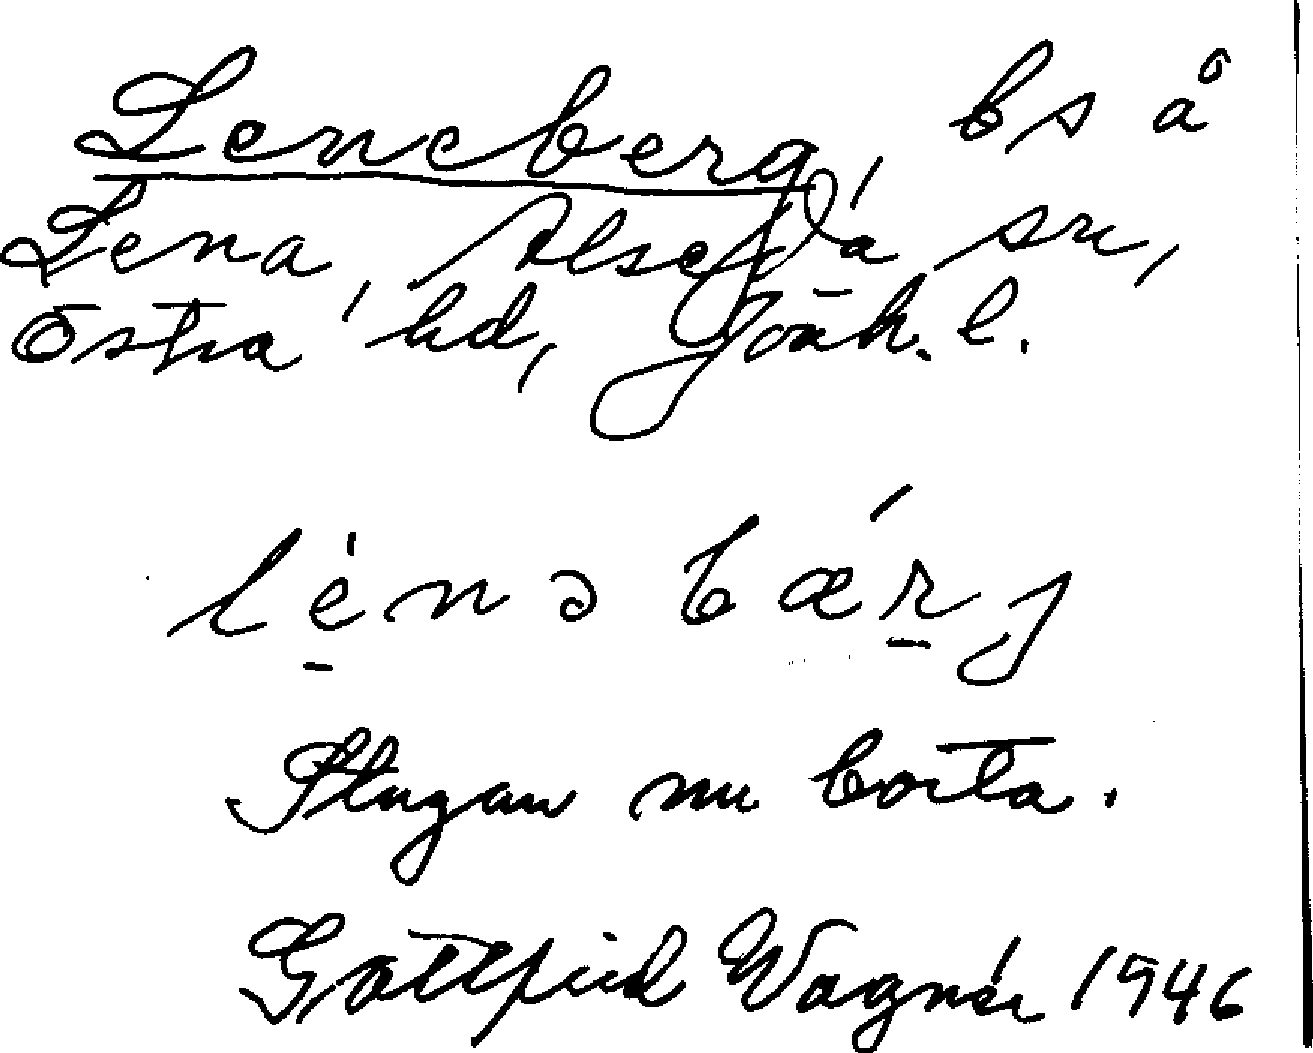 Leneberg, bs å
Lena, Alseda sn,
Östra hd, Jönk. l.
lènəbærj
Stugan nu borta.
Gottfrid Wagnér 1946